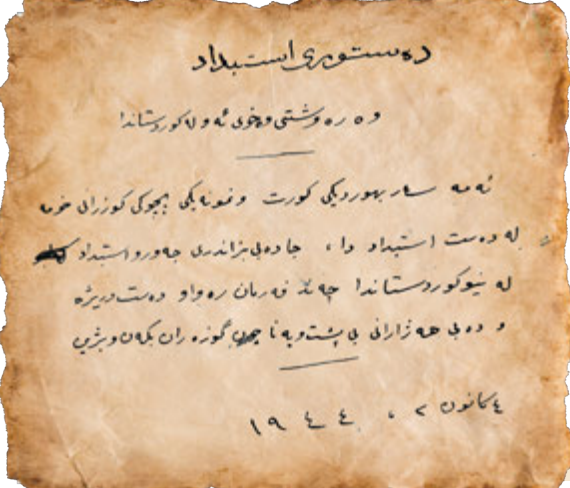 دەستوری استبداد
وە رەوشتی وخوی ئەو لە کوردستاندا
ئەمە سەر بهوردیکی کورت ونمونەیکی بچوکی گوزرانی خومە
لە دەست استبداد دا، جا دەبی بزاندری جەور و استبداد
لە نیو کوردستاندا چەند فەرمان رەواو دەست دریژە
و دەبی هەژارانی بی پشت و پەنا چون گوزەران بکەن و بژین
٤ کانون ٢ ، ١٩٤٤